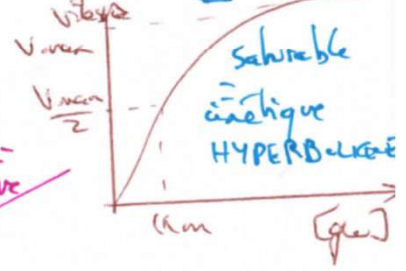 vitesse
Vmax
saturable
Vmax
2
=
cinétique
HYPERBOLIQUE
Km
[glu]